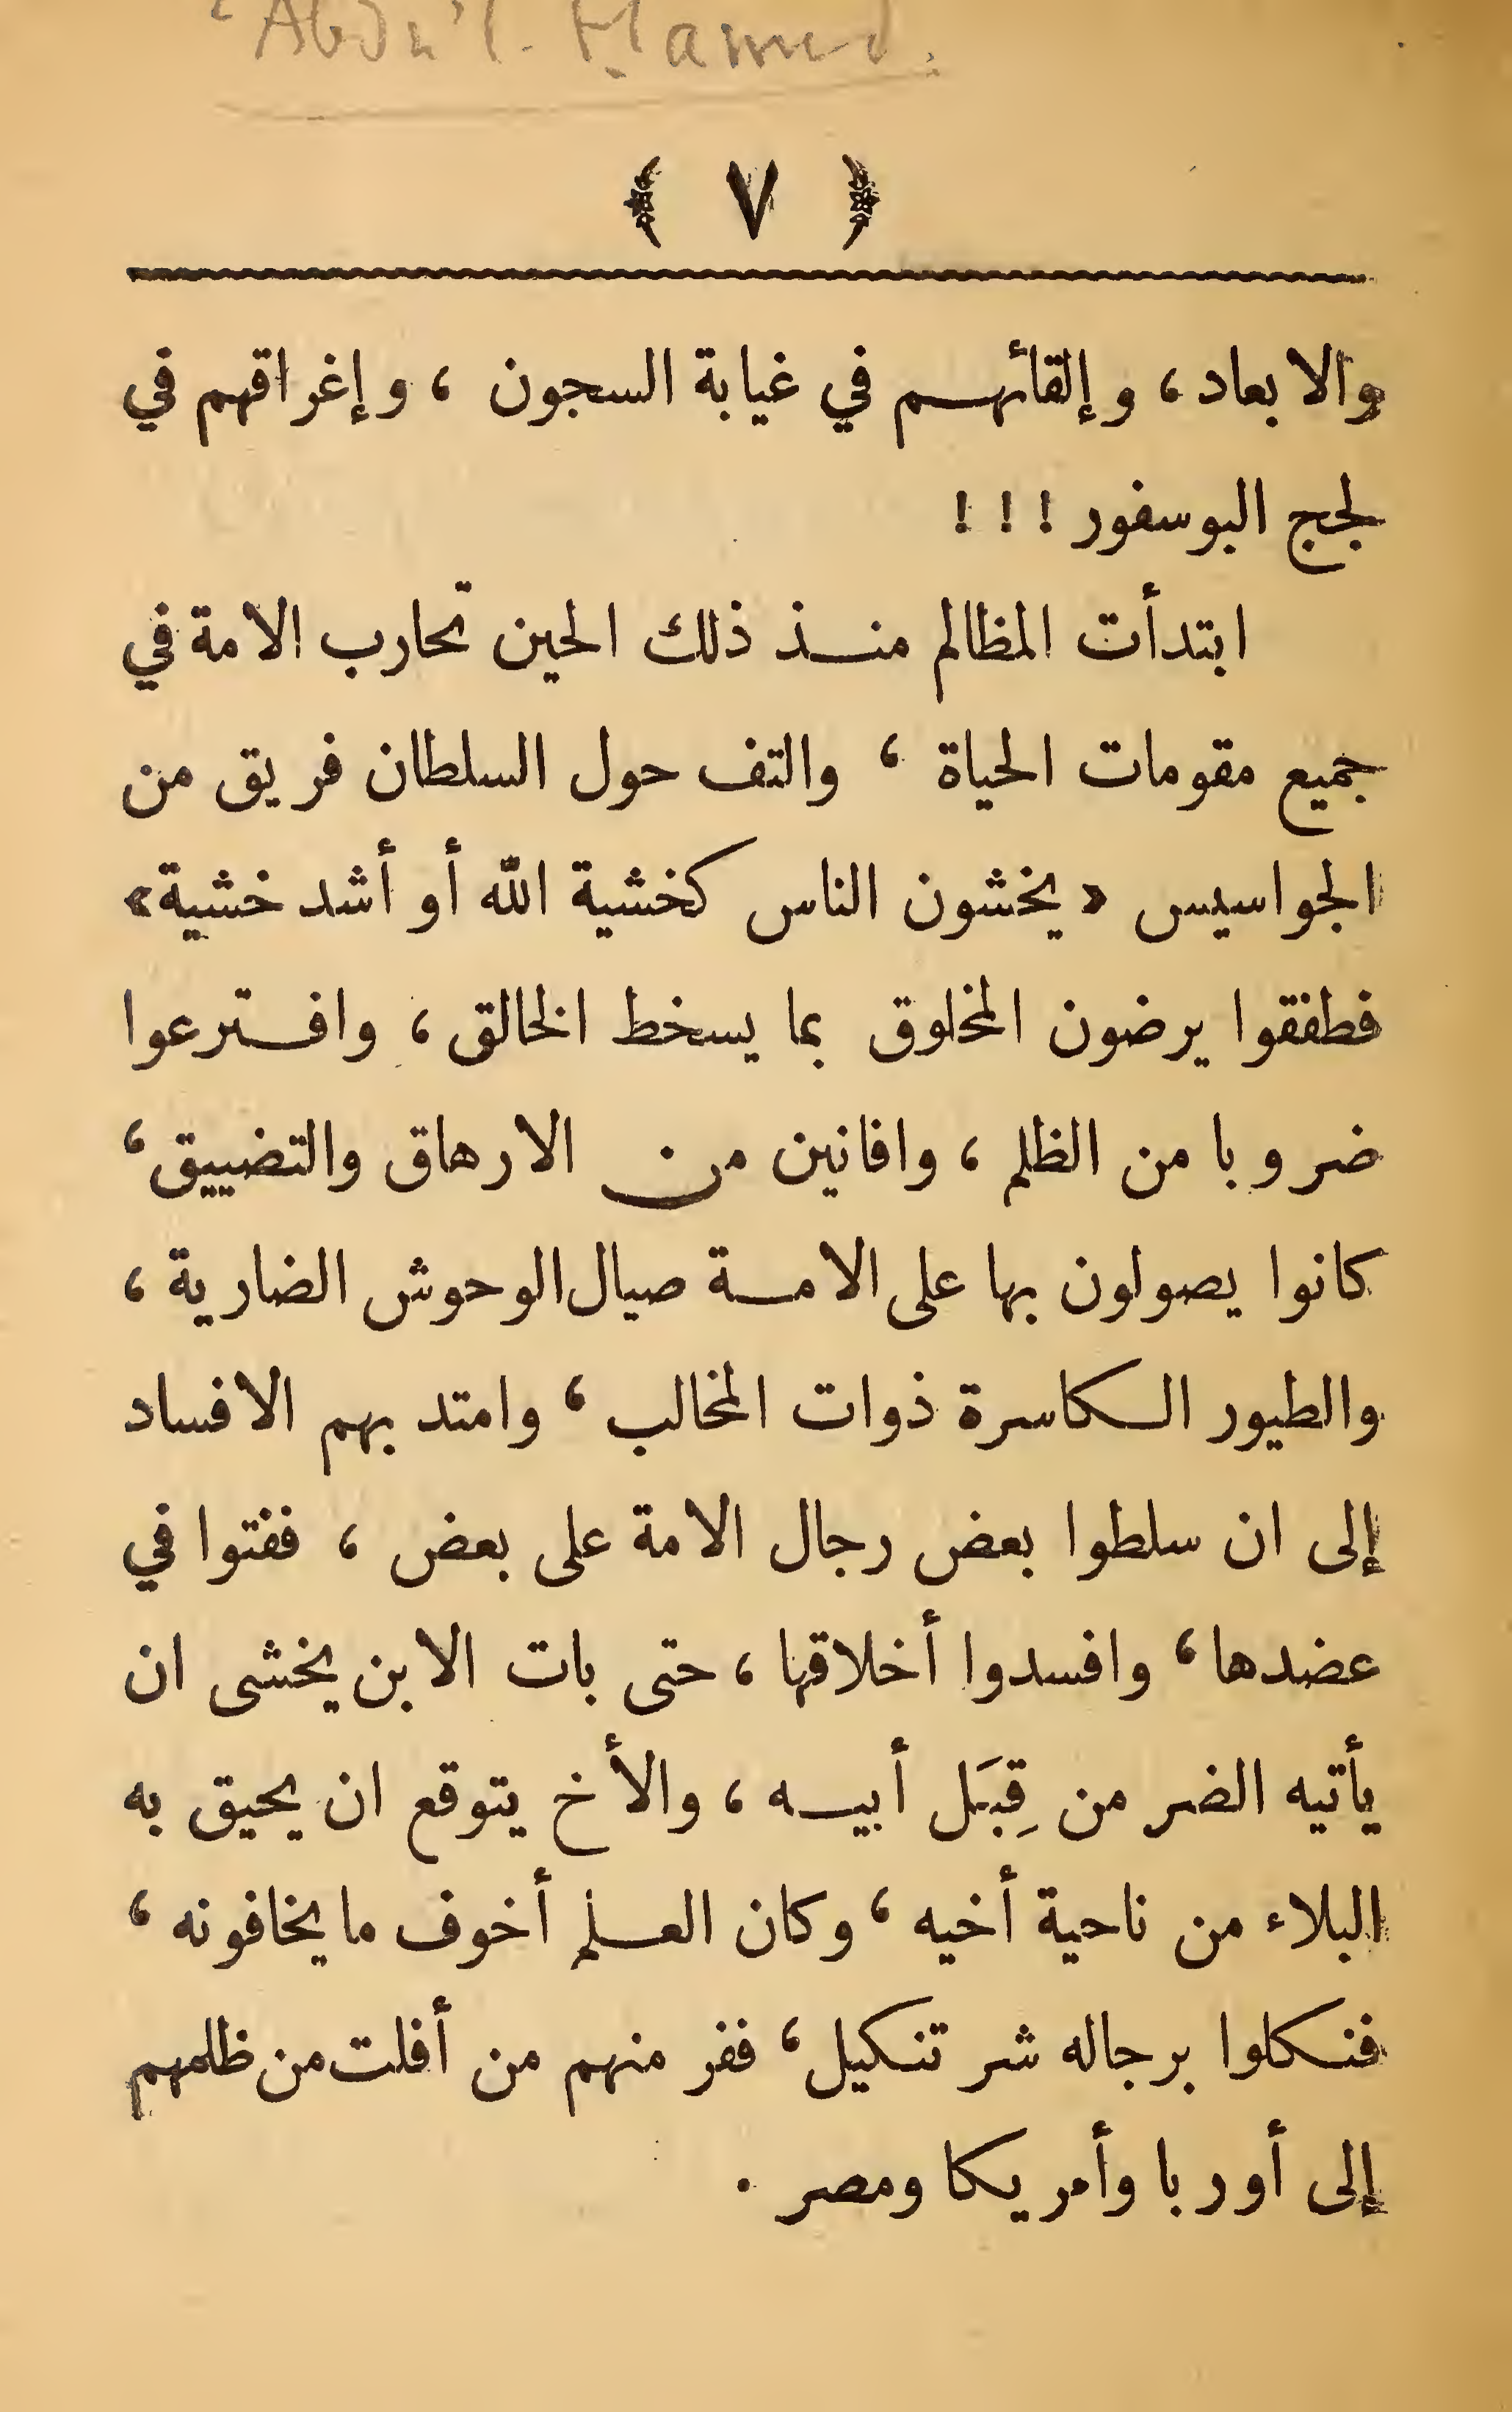 ‘Abdu'l-Hamid.
﴿ ٧ ﴾
والابعاد، وإلقائهم في غيابة السجون ، وإغراقهم في
لجج البوسفور ! ! !
ابتدأت المظالم منذ ذلك الحين تحارب الامة في
جميع مقومات الحياة ، والتف حول السلطان فريق من
الجواسيس «يخشون الناس كخشية الله أو أشد خشية»
فطفقوا يرضون المخلوق بما يسخط الخالق، وافترعوا
ضروبا من الظلم ، وافانين من الارهاق والتضييق،
كانوا يصولون بها على الامة صيال الوحوش الضارية ،
والطيور الكاسرة ذوات المخالب ، وامتد بهم الافساد
إلى ان سلطوا بعض رجال الامة على بعض ، ففتوا في
عضدها ، وافسدوا أخلاقها ، حتى بات الابن يخشى ان
يأتيه الضر من قِبَل أبيه ، والأخ يتوقع ان يحيق به
البلاء من ناحية أخيه ، وكان العلم أخوف ما يخافونه ،
فنكلوا برجاله شر تنكيل، ففر منهم من أفلت من ظلمهم
إلى أوربا وأمريكا ومصر .